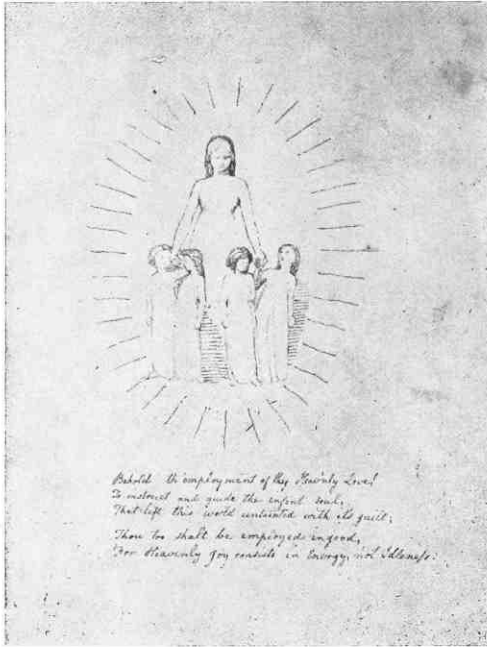 Behold th' employment of thy Heav'nly Love!
To instruct and guide the infant soul,
That left this world untainted with its guilt;
Thou too shalt be employed in good,
For Heavenly Joy consists in Energy, not Idleness: